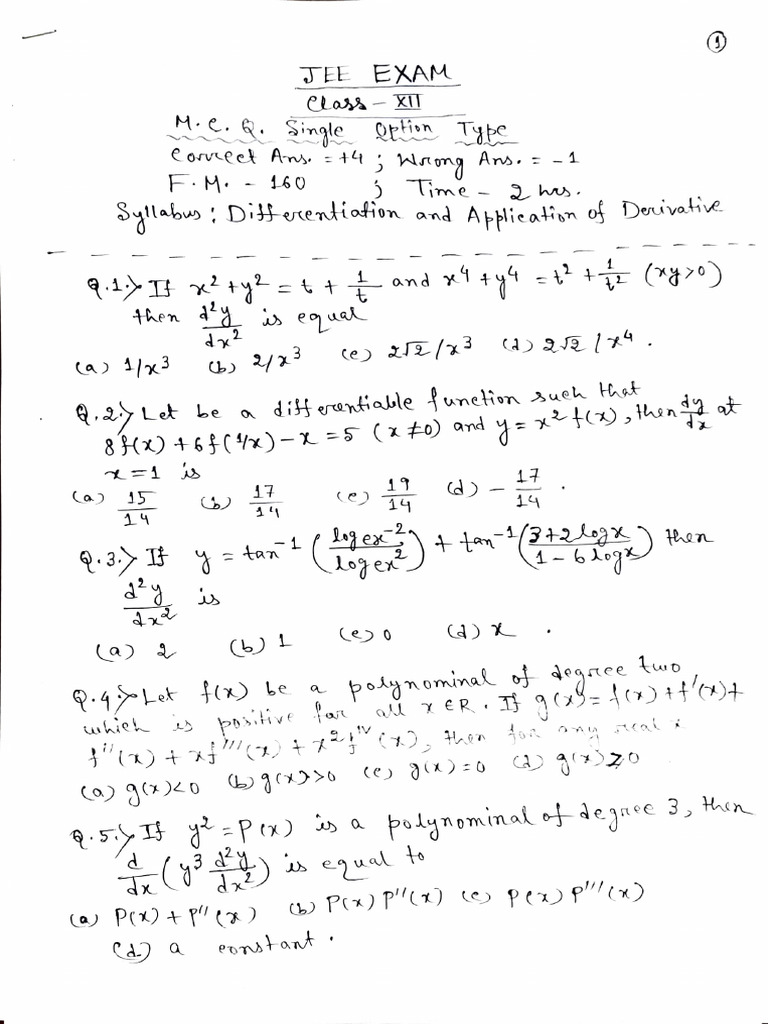 ①
JEE EXAM
Class - XII
M.C.Q. Single Option Type
Correct Ans. = +4 ; Wrong Ans. = -1
F.M. - 160 ; Time - 2 hrs.
Syllabus : Differentiation and Application of Derivative
Q.1.> If x² + y² = t + 1/t and x⁴ + y⁴ = t² + 1/t² (xy>0)
then d²y/dx² is equal
(a) 1/x³ (b) 2/x³ (c) 2√2/x³ (d) 2√2/x⁴ .
Q.2.> Let be a differentiable function such that
8f(x) + 6f(1/x) - x = 5 (x ≠ 0) and y = x² f(x), then dy/dx at
x = 1 is
(a) 15/14 (b) 17/14 (c) 19/14 (d) - 17/14 .
Q.3.> If y = tan⁻¹ (log ex⁻²/log ex²) + tan⁻¹ (3+2 log x/1-6 log x) then
d²y/dx² is
(a) 2 (b) 1 (c) 0 (d) x .
Q.4.> Let f(x) be a polynominal of degree two
which is positive for all x ∈ R. If g(x) = f(x) + f'(x) +
f''(x) + xf'''(x) + x² f^iv (x), then for any real x
(a) g(x)<0 (b) g(x)>0 (c) g(x)=0 (d) g(x)≥0
Q.5.> If y² = P(x) is a polynominal of degree 3, then
d/dx (y³ d²y/dx²) is equal to
(a) P(x) + P''(x) (b) P(x) P''(x) (c) P(x) P'''(x)
(d) a constant .